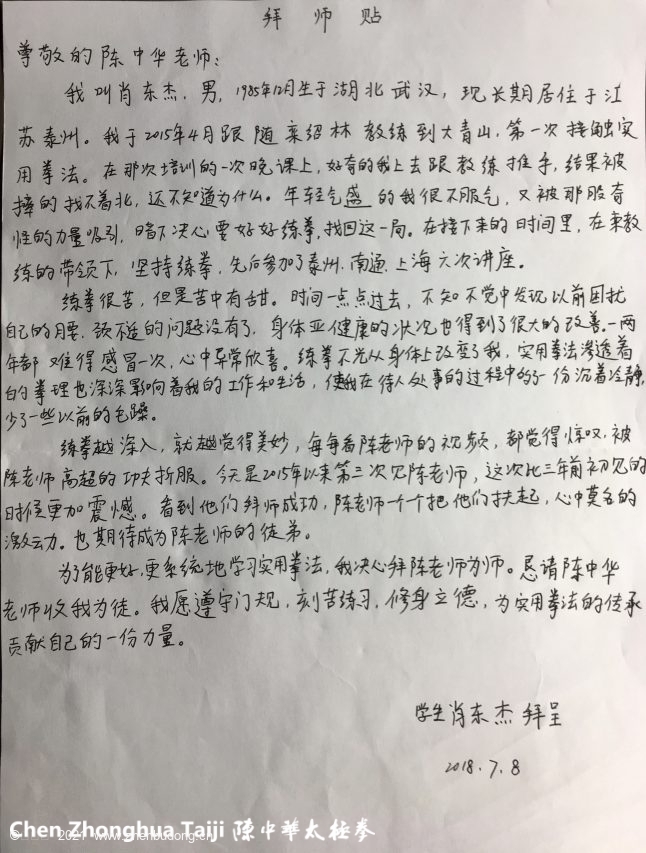 拜 师 贴
尊敬的陈中华老师：
我叫肖东杰，男，1985年12月生于湖北武汉，现长期居住于江
苏泰州。我于2015年4月跟随来绍林教练到大青山，第一次接触实
用拳法。在那次培训的一次晚课上，好奇的我上去跟教练推手，结果被
摔的找不着北，还不知道为什么。年轻气盛的我很不服气，又被那股奇
怪的力量吸引，暗下决心要好好练拳，找回这一局。在接下来的时间里，在来教
练的带领下，坚持练拳，先后参加了泰州、南通、上海六次讲座。
练拳很苦，但是苦中有甜。时间一点点过去，不知不觉中发现以前困扰
自己的腰、颈不适的问题没有了，身体亚健康的状况也得到了很大的改善。一两
年都难得感冒一次，心中异常欣喜。练拳不光从身体上改变了我，实用拳法渗透着
的拳理也深深影响着我的工作和生活，使我在待人处事的过程中多了一份沉着冷静，
少了一些以前的毛躁。
练拳越深入，就越觉得美妙，每每看陈老师的视频，都觉得惊叹，被
陈老师高超的功夫折服。今天是2015年以来第三次见陈老师，这次比三年前初见的
时候更加震憾。看到他们拜师成功，陈老师一个个把他们扶起，心中莫名的
激动。也期待成为陈老师的徒弟。
为了能更好，更系统地学习实用拳法，我决心拜陈老师为师。恳请陈中华
老师收我为徒。我愿遵守门规，刻苦练习，修身立德，为实用拳法的传承
贡献自己的一份力量。
学生肖东杰 拜呈
2018.7.8
Chen Zhonghua Taiji 陳中華太極拳